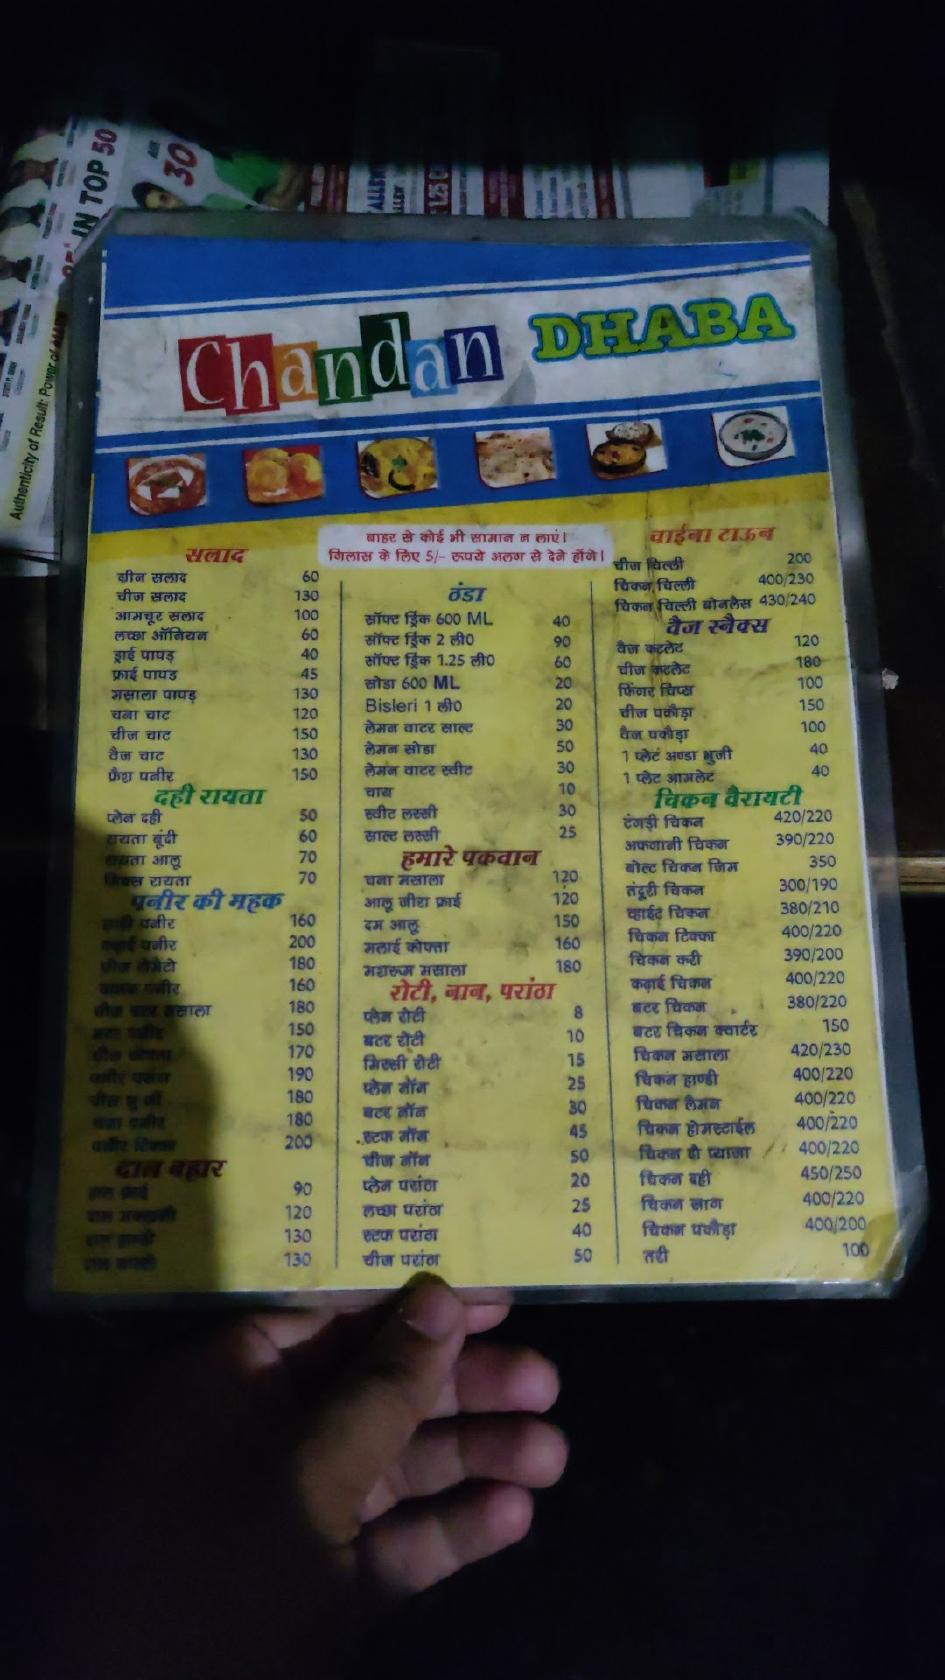 IN TOP 50
30
1.25 C
Authenticity of Result: Power of
Chandan DHABA
बाहर से कोई भी सामान न लाएं।
गिलास के लिए 5/- रूपये अलग से देने होंगे।
सलाद
ग्रीन सलाद 60
चीज सलाद 130
आमचूर सलाद 100
लच्छा ऑनियन 60
ड्राई पापड़ 40
फ्राई पापड 45
मसाला पापड़ 130
चना चाट 120
चीज चाट 150
वैज चाट 130
फ्रैश पनीर 150
दही रायता
प्लेन दही 50
रायता बूंदी 60
रायता आलू 70
मिक्स रायता 70
पनीर की महक
पनीर 160
पनीर 200
180
पनीर 160
मसाला 180
150
170
190
180
180
200
दाल बहार
90
120
130
130
ठंडा
सॉफ्ट ड्रिंक 600 ML 40
सॉफ्ट ड्रिंक 2 ली0 90
सॉफ्ट ड्रिंक 1.25 ली0 60
सोडा 600 ML 20
Bisleri 1 ली0 20
लेमन वाटर साल्ट 30
लेमन सोडा 50
लेमन वाटर स्वीट 30
चाय 10
स्वीट लस्सी 30
साल्ट लस्सी 25
हमारे पकवान
चना मसाला 120
आलू जीरा फ्राई 120
दम आलू 150
मलाई कोफ्ता 160
मशरूम मसाला 180
रोटी, नान, परांठा
प्लेन रोटी 8
बटर रोटी 10
मिस्सी रोटी 15
प्लेन नॉन 25
बटर नॉन 30
स्टफ नॉन 45
चीज नॉन 50
प्लेन परांठा 20
लच्छा परांठा 25
स्टफ परांठा 40
चीज परांठा 50
चाईना टाऊन
चीज चिल्ली 200
चिकन चिल्ली 400/230
चिकन चिल्ली बोनलेस 430/240
वैज स्नैक्स
वैज कटलेट 120
चीज कटलेट 180
फिंगर चिप्स 100
चीज पकौड़ा 150
वैज पकौड़ा 100
1 प्लेट अण्डा भुजी 40
1 प्लेट आमलेट 40
चिकन वैरायटी
टंगड़ी चिकन 420/220
अफगानी चिकन 390/220
बोल्ट चिकन जिम 350
तंदूरी चिकन 300/190
व्हाईट चिकन 380/210
चिकन टिक्का 400/220
चिकन करी 390/200
कढ़ाई चिकन 400/220
बटर चिकन 380/220
बटर चिकन क्वार्टर 150
चिकन मसाला 420/230
चिकन हाण्डी 400/220
चिकन लैमन 400/220
चिकन होमस्टाईल 400/220
चिकन दो प्याजा 400/220
चिकन दही 450/250
चिकन साग 400/220
चिकन पकौड़ा 400/200
तरी 100